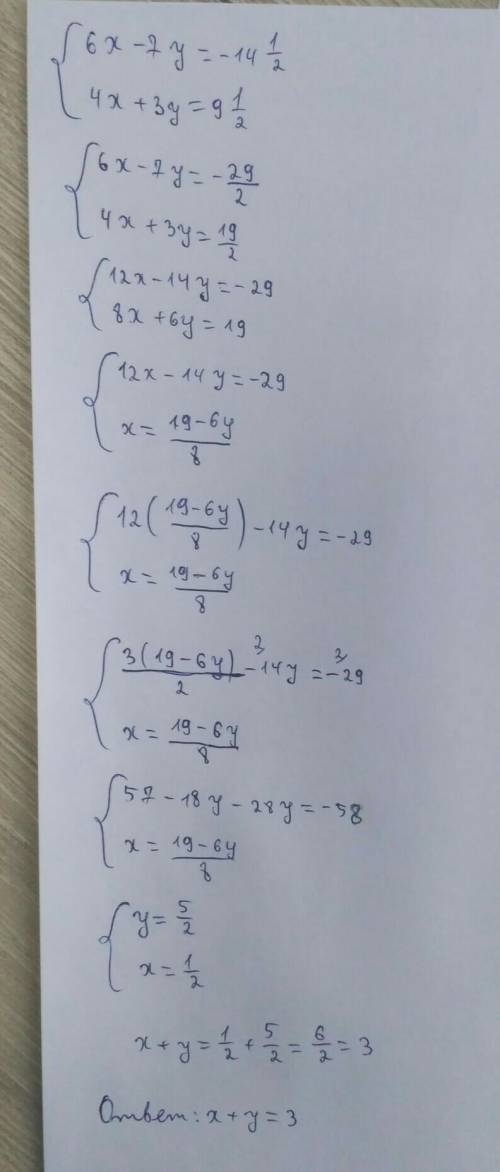 6x - 7y = -14 1/2
4x + 3y = 9 1/2
6x - 7y = -29/2
4x + 3y = 19/2
12x - 14y = -29
8x + 6y = 19
12x - 14y = -29
x = (19 - 6y)/8
12((19 - 6y)/8) - 14y = -29
x = (19 - 6y)/8
3(19 - 6y)/2 -²14y = -²29
x = (19 - 6y)/8
57 - 18y - 28y = -58
x = (19 - 6y)/8
y = 5/2
x = 1/2
x + y = 1/2 + 5/2 = 6/2 = 3
Ответ: x + y = 3